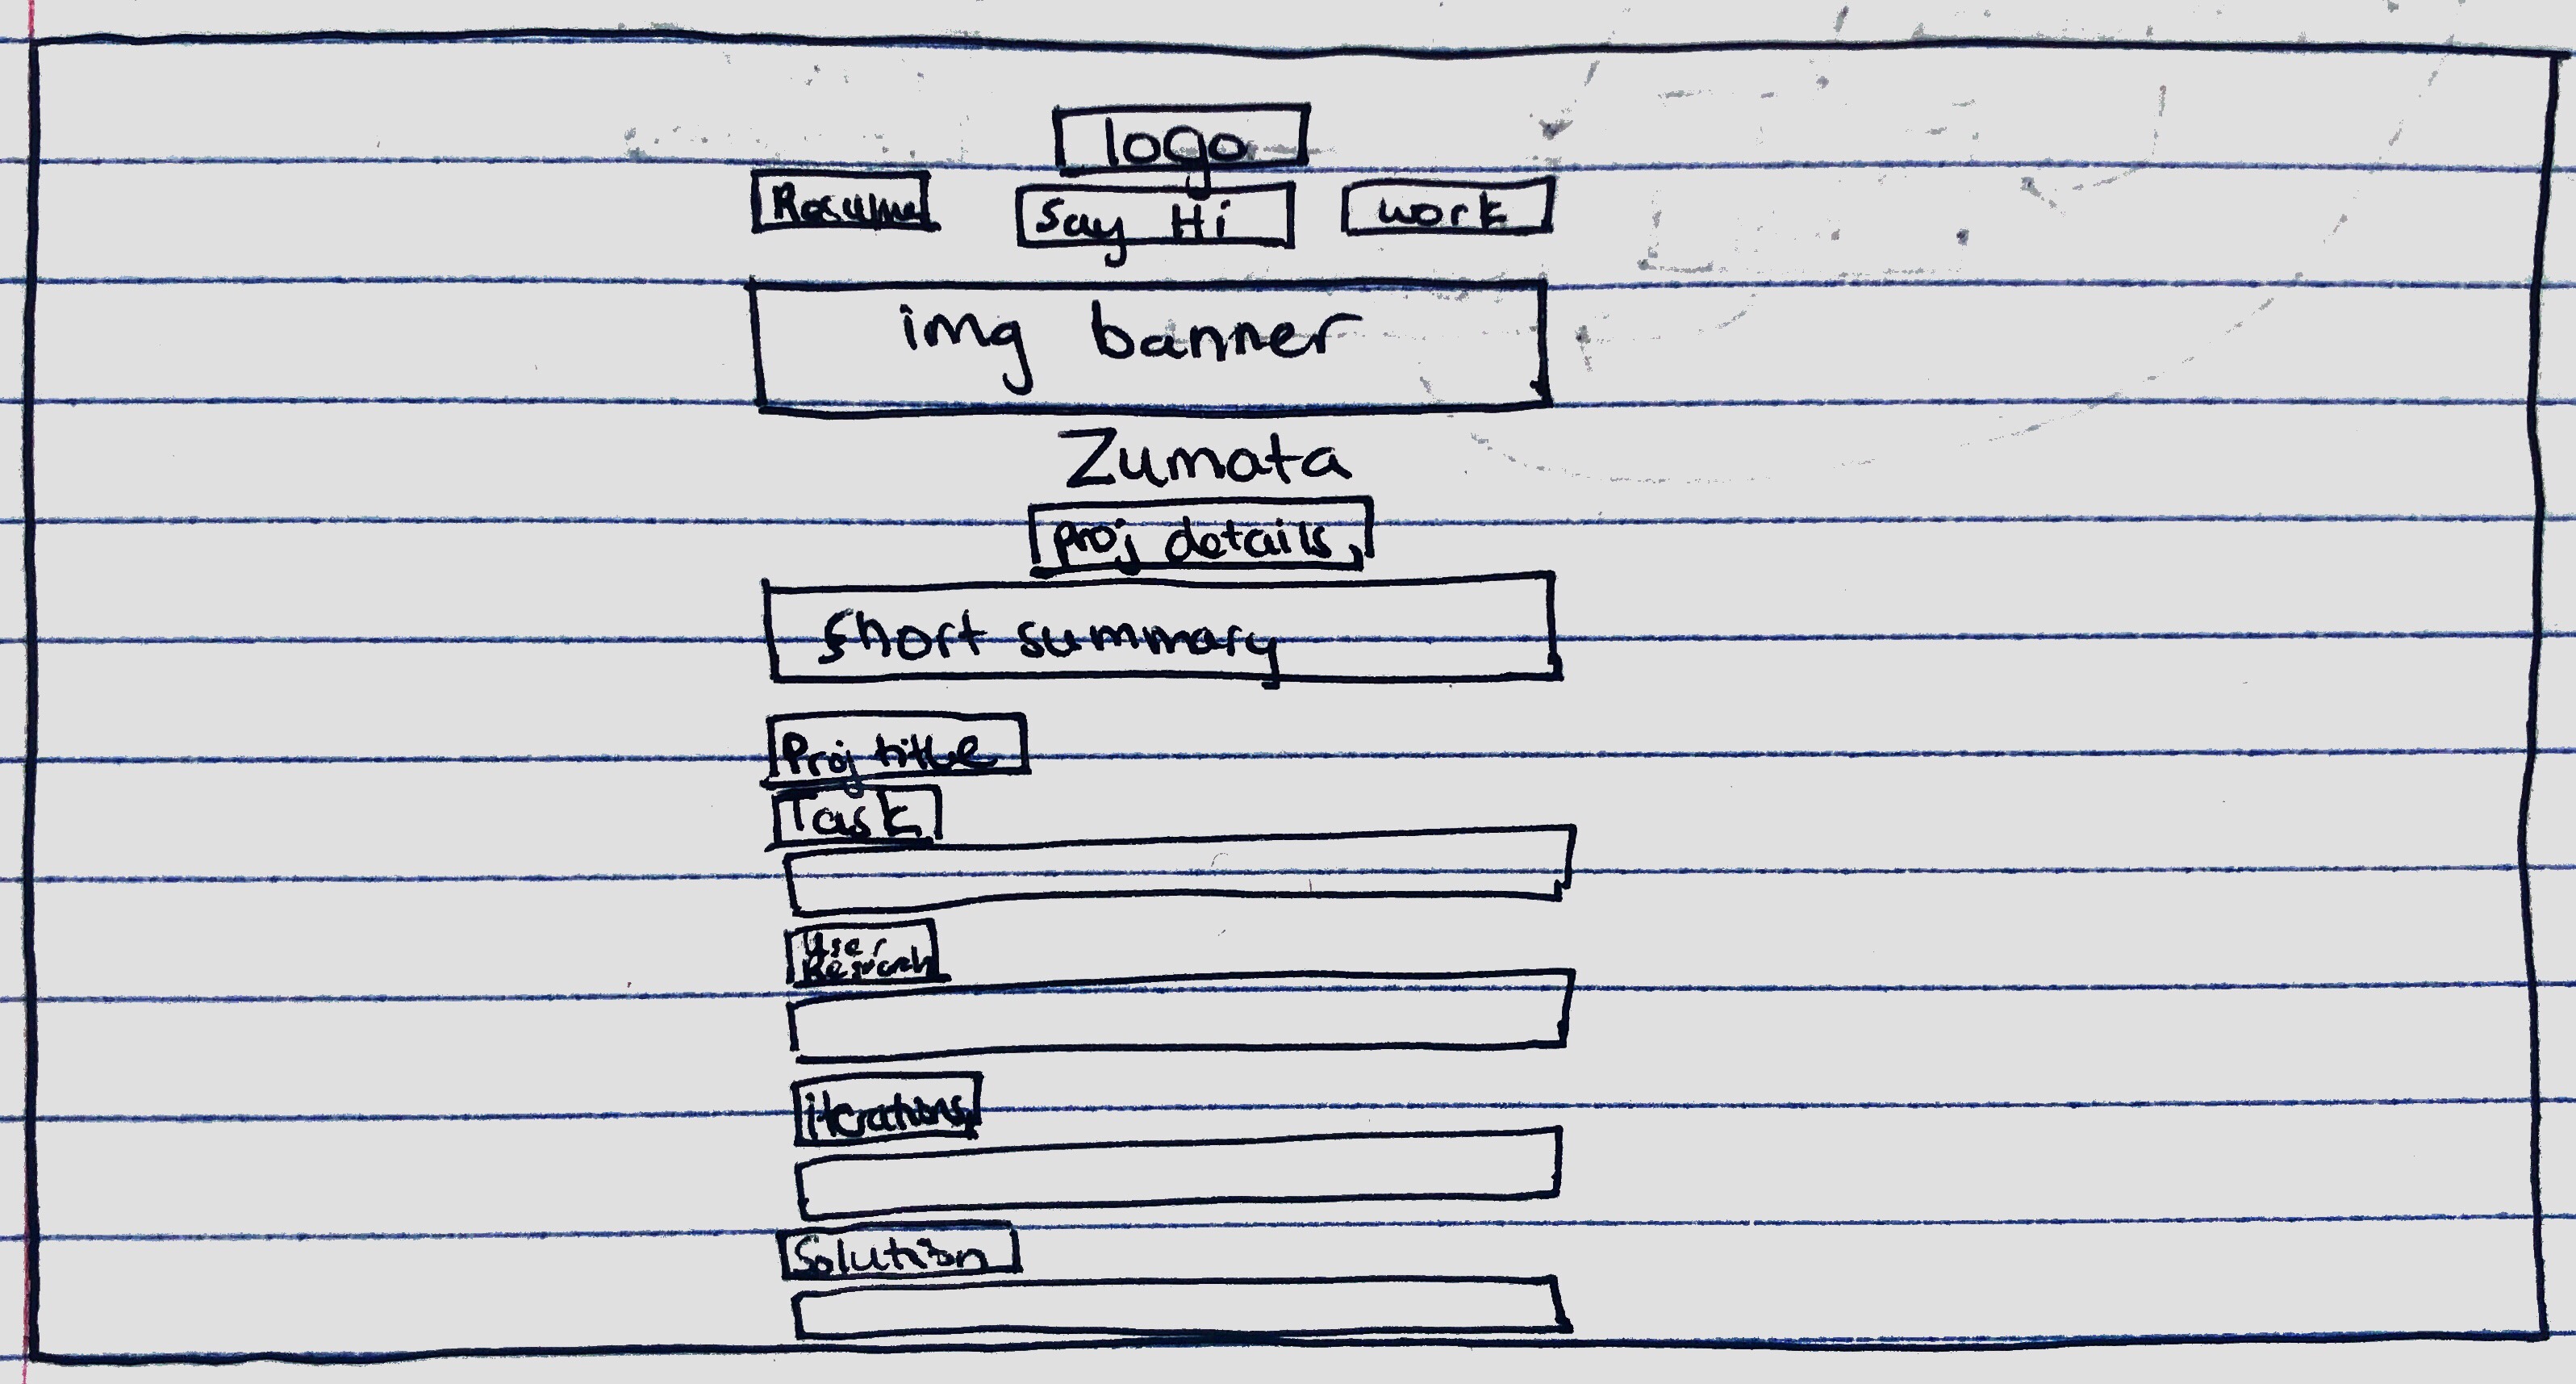 logo
Resume
Say Hi
work
img banner
Zumata
proj details
short summary
Proj title
Task
User
Research
iterations
Solution